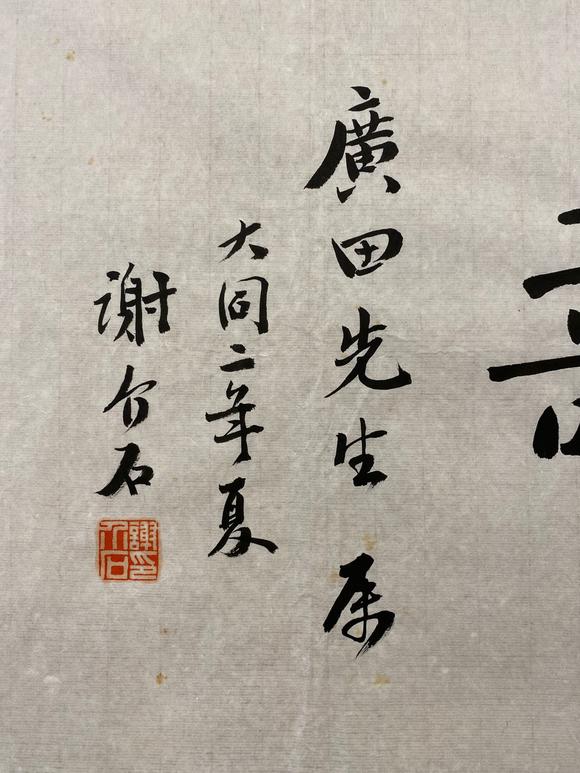 廣田先生 属
大同二年夏
謝介石
謝印
介石